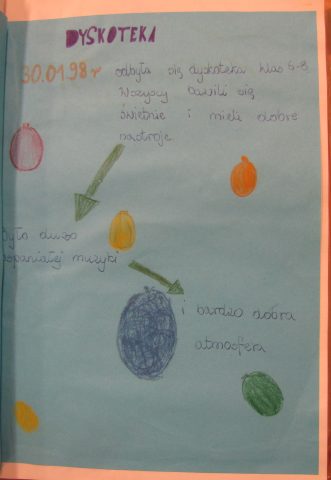 DYSKOTEKA
30.01.98r odbyła się dyskoteka klas 4-8
Wszyscy bawili się
świetnie i mieli dobre
nastroje.
Było dużo
wspaniałej muzyki
i bardzo dobra
atmosfera